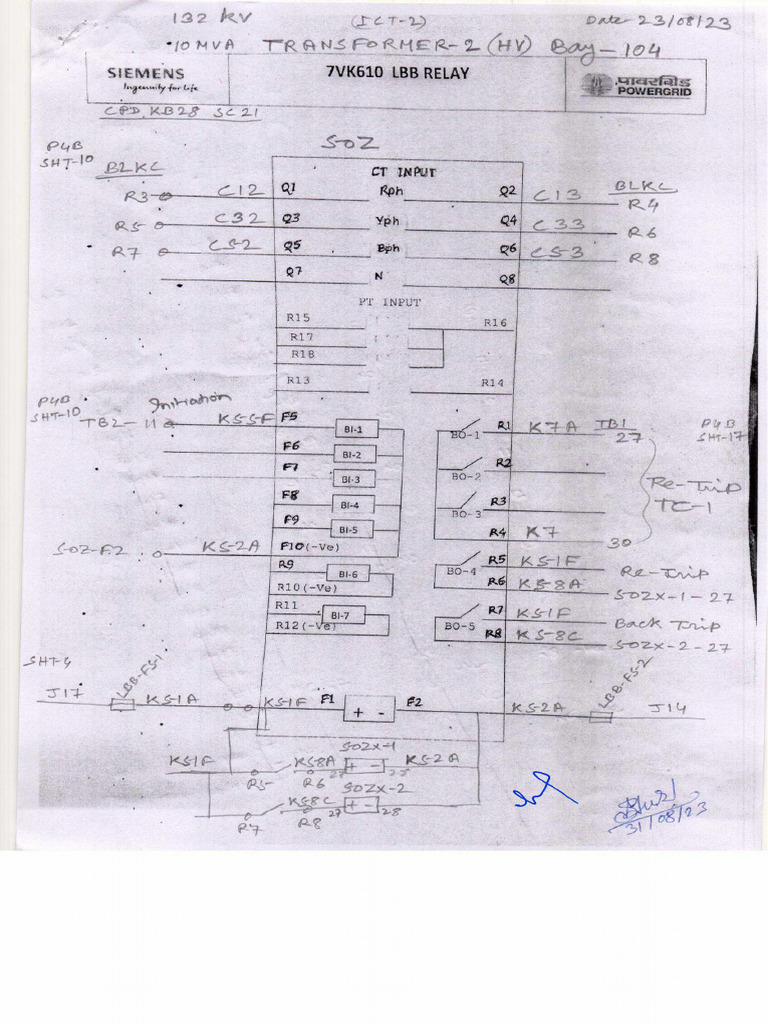 132 KV (ICT-2) Date-23/08/23
10 MVA TRANSFORMER-2 (HV) Bay-104
SIEMENS
Ingenuity for life
7VK610 LBB RELAY
पावरग्रिड
POWERGRID
CPD KB28 SC21
P4B
SHT-10
50Z
BLKC CT INPUT BLKC
R3 C12 Q1 Rph Q2 C13 R4
R5 C32 Q3 Yph Q4 C33 R6
R7 C52 Q5 Bph Q6 C53 R8
Q7 N Q8
PT INPUT
R15 R16
R17
R18
R13 R14
P4B
SHT-10
Initiation
TB2-11 K55F F5 BI-1 BO-1 R1 K7A TB1
27
P4B
SHT-17
F6 BI-2 BO-2 R2
F7 BI-3
F8 BI-4 BO-3 R3
Re-Trip
TC-1
F9 BI-5 R4 K7 30
50Z-F2 K52A F10(-Ve)
R9 BI-6 BO-4 R5 K51F Re-Trip
R10(-Ve) R6 K58A 50ZX-1-27
R11 BI-7 BO-5 R7 K51F Back Trip
R12(-Ve) R8 K58C 50ZX-2-27
SHT-4
LBB-FS-1 LBB-FS-2
J17 K51A K51F F1 + - F2 K52A J14
50ZX-1
K51F R5 K58A R6 27 + - 28 K52A
50ZX-2
R7 K58C R8 27 + - 28
31/08/23